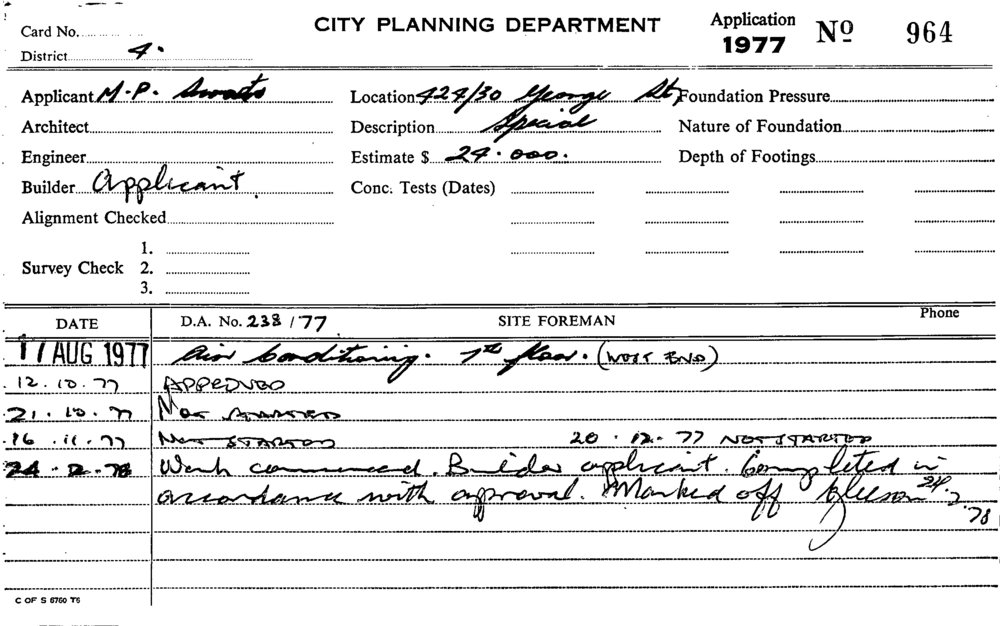 CITY PLANNING DEPARTMENT
Application 1977 Nº 964
Card No.
District 4.
Applicant M.P.
Location 424/30 George St,
Foundation Pressure
Architect
Description Special
Nature of Foundation
Engineer
Estimate $ 24.000.
Depth of Footings
Builder Applicant.
Conc. Tests (Dates)
Alignment Checked
Survey Check
1.
2.
3.
DATE
D.A. No. 238/77
SITE FOREMAN
Phone
17 AUG 1977 Air Conditioning. 7th floor. (WEST END)
12.10.77 APPROVED
21.10.77 NOT STARTED
16.11.77 NOT STARTED 20.12.77 NOT STARTED
24.2.78 Work commenced. Builder applicant. Completed in
accordance with approval. Marked off 24.2.78
C OF S 6760 T6